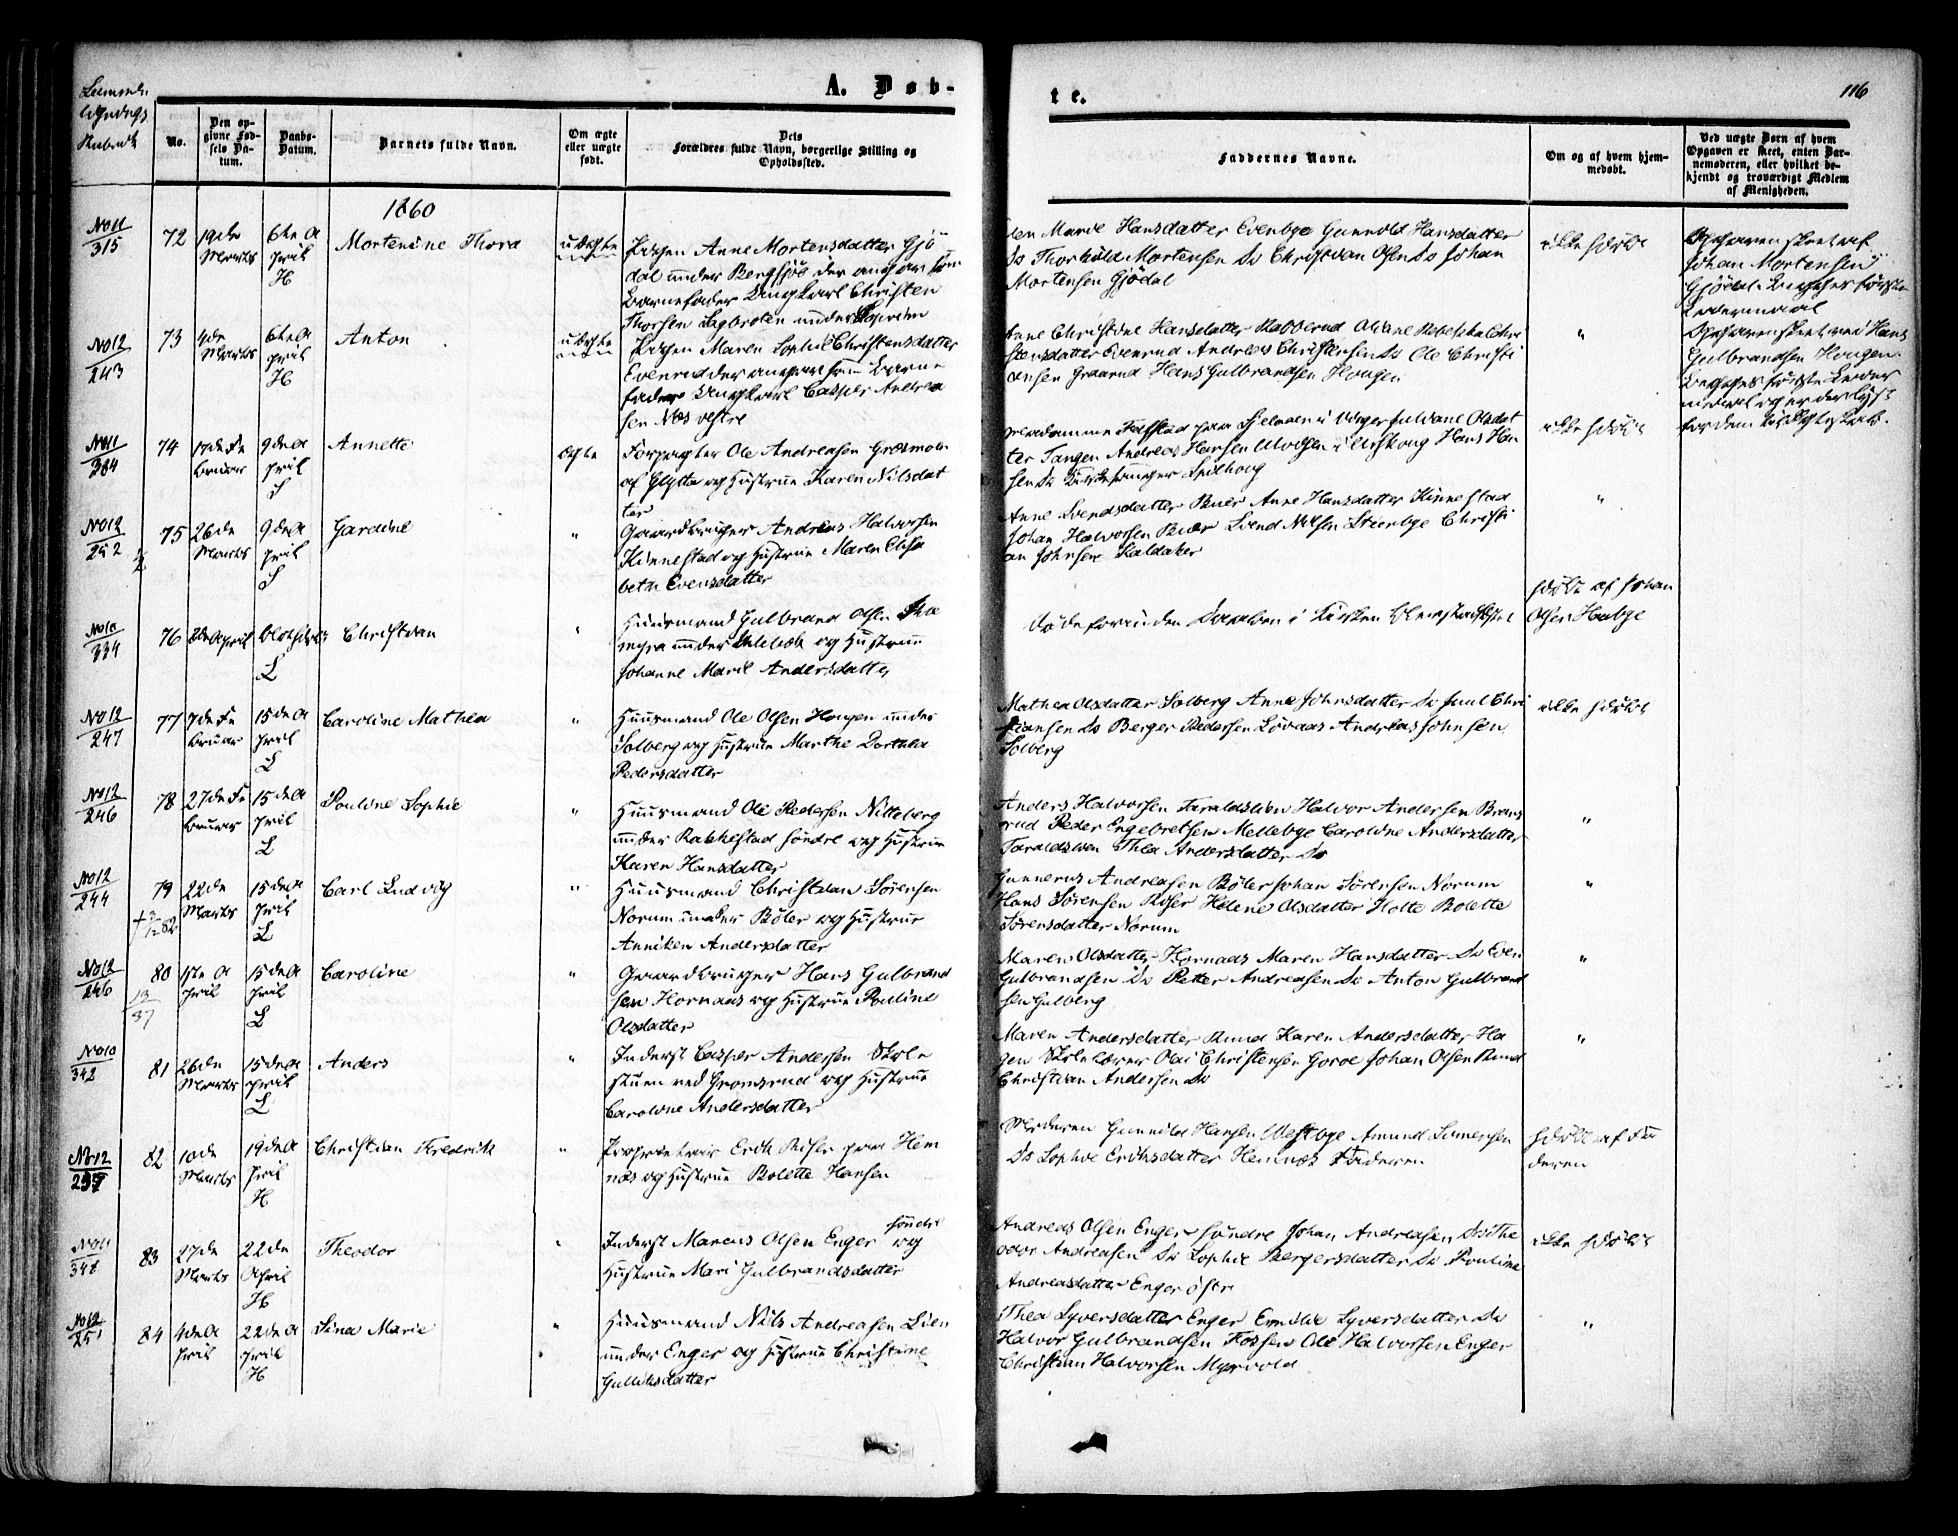 A. Døb-
te.
116
No.
Den op-
givne Fød-
sels Da-
tum.
Daabs-
Datum.
Barnets fulde Navn.
Om ægte
eller uægte
født.
Dets
Forældres fulde Navn, borgerlige Stilling og
Opholdssted.
Faddernes Navne.
Om og af hvem hjem-
medøbt.
Ved uægte Børn af hvem
Opgaven er skeet, enten Bar-
nemoderen, eller hvilket be-
kjendt og troværdigt Medlem
af Menigheden.
1860
No 11
315
72
19de
Marts
6te A
pril
H
Mortenine Thora
uægte
Pigen Anne Mortensdatter Gjö
dal under Bergsjöe der angav som
Barnefader Ungkarl Christen
Thorsen under
Marie Hansdatter Evenbye Gunnild Hansdatter
Do Thorkild Mortensen Do Christian Olsen Do Johan
Mortensen Gjödal
ikke hdöbt
Opgaven skeet af
Johan Mortensen
Gjödal. Begges første
Leiermaal
No 12
243
73
4de
Marts
6te A
pril
H
Anton
uægte
Pigen Maren Sophie Christensdatter
Evenrud der angav som Barne
fader Ungkarl Casper Andrea
sen Næs vestre
Anne Christine Hansdatter
stensdatter Evenrud Andreas Christensen Do Ole Christi
ansen Graarud Hans Gulbrandsen Hougen
"
Opgaven skeet ved Hans
Gulbrandsen Hougen.
Begges første Leier
maal og er der lyst
for dem til Ægteskab.
No 11
384
74
17de Fe
bruar
9de A
pril
S
Annette
ægte
Forpagter Ole Andreasen Græsmoen
af Glytte og Hustrue Karen Nilsdat
ter
Olsdat
ter Tangen Andreas Hansen i Urskoug Hans Han
sen Do
ikke hdöbt
No 12
252
75
26de
Marts
9de A
pril
S
Gardine
"
Gaardbruger Andreas Halvorsen
Kinnestad og Hustrue Maren Elisa
beth Evensdatter
Anne Svendsdatter Buer Anne Hansdatter Kinnestad
Johan Halvorsen Buer Svend Nilsen Stenbye Christi
an Johnsen Kaldaker
"
No 10
334
76
2de April
Christian
"
Huusmand Gulbrand Olsen
myra under og Hustrue
Johanne Marie Andersdatter
Döde forinden Daaben i Kirken
hdöbt af Johan
Olsen Haabye
No 12
247
77
7de Fe
bruar
15de A
pril
L
Caroline Mathea
"
Huusmand Ole Olsen Hougen under
Solberg og Hustrue Marthe Dorthea
Pedersdatter
Mathea Olsdatter Solberg Anne Johnsdatter Do Juul Chri
stiansen Do Berger Pedersen Lövaas Andreas Johnsen
Solberg
ikke hdöbt
No 12
246
78
27de Fe
bruar
15de A
pril
L
Pauline Sophie
"
Huusmand Ole Pedersen Nitteberg
under Rakkestad söndre og Hustrue
Karen Hansdatter
Anders Halvorsen Taraldslien Halvor Andersen
rud Peder Engebretsen Mellebye Caroline Andersdatter
Taraldslien Thea Andersdatter Do
"
No 12
244
79
22de
Marts
15de A
pril
L
Carl Ludvig
"
Huusmand Christian Sörensen
Norum under Böler og Hustrue
Anniken Andersdatter
Gunnerus Andreasen Böler Johan Sörensen Norum
Hans Sörensen Riser Helene Olsdatter Holte Bolette
Sörensdatter Norum
"
No 12
246
80
1ste A
pril
15de A
pril
L
Caroline
"
Gaardbruger Hans Gulbrand
sen Hornaas og Hustrue Pauline
Olsdatter
Maren Olsdatter Hornaas Maren Hansdatter Do Even
Gulbrandsen Do Petter Andreasen Do Anton Gulbrand
sen Gulberg
"
No 10
342
81
26de
Marts
15de A
pril
L
Anders
"
Inderst Casper Andersen Skole
stuen ved Gromsrud og Hustrue
Caroline Andersdatter
Maren Andersdatter Ruud Karen Andersdatter Ha
gen Skolelærer Olai Christensen Johan Olsen Ruud
Christian Andersen Do
"
No 12
82
10de
Marts
19de A
pril
H
Christian Fredrik
"
Proprietair Erik Riser paa Hem
næs og Hustrue Bolette Hansen
Moderen Gunnild Hansen Westbye Amund Simensen
Do Sophie Eriksdatter Hemnæs Faderen
hdöbt af Fa
deren
No 11
348
83
27de
Marts
22de
April
H
Theodor
"
Inderst Marcus Olsen Enger söndre og
Hustrue Mari Gulbrandsdatter
Andreas Olsen Enger söndre Johan Andreasen Do The
odor Andreasen Do Sophie Bergersdatter Do Pauline
Andreasdatter Enger östre
ikke hdöbt
No 12
251
84
4de A
pril
22de A
pril
H
Lina Marie
"
Huusmand Nils Andreasen Lien
under Enger og Hustrue Christine
Gulliksdatter
Thea Syversdatter Enger Emilie Syversdatter Do
Halvor Gulbrandsen Fossen Ole Halvorsen Enger
Christian Halvorsen Myrvold
"